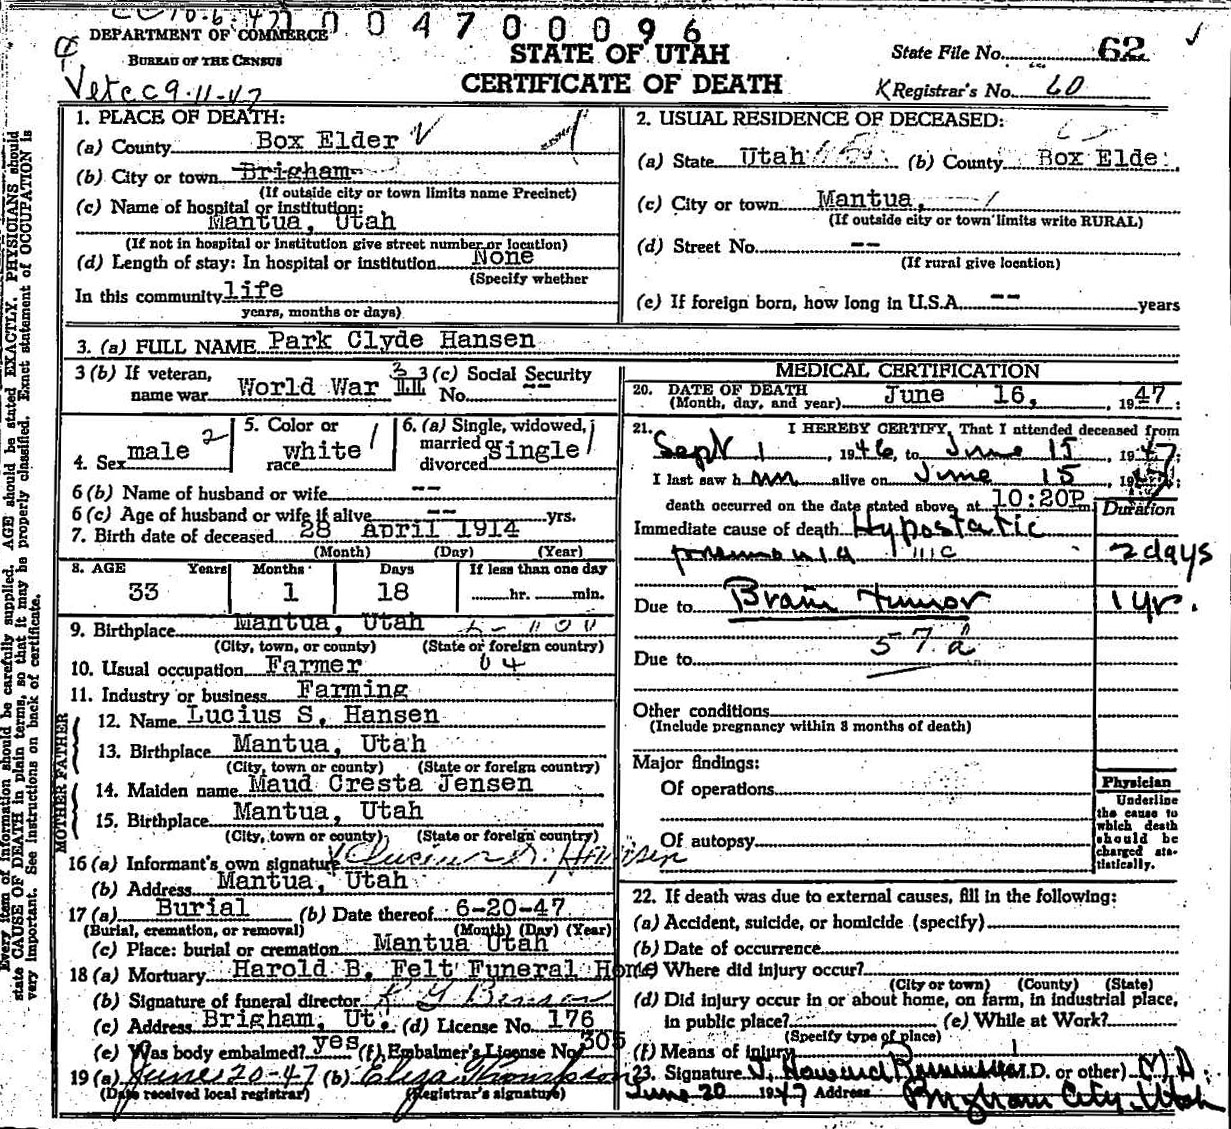 CC 10-6-47
0 0 4 7 0 0 0 9 6
DEPARTMENT OF COMMERCE
BUREAU OF THE CENSUS
Vet cc 9-11-47
STATE OF UTAH
CERTIFICATE OF DEATH
State File No. 62
Registrar's No. 60
Every item of information should be carefully supplied. AGE should be stated EXACTLY. PHYSICIANS should
state CAUSE OF DEATH in plain terms, so that it may be properly classified. Exact statement of OCCUPATION is
very important. See instructions on back of certificate.
1. PLACE OF DEATH:
(a) County Box Elder
(b) City or town Brigham
(If outside city or town limits name Precinct)
(c) Name of hospital or institution:
Mantua, Utah
(If not in hospital or institution give street number or location)
(d) Length of stay: In hospital or institution None
(Specify whether
In this community life
years, months or days)
2. USUAL RESIDENCE OF DECEASED:
(a) State Utah (b) County Box Elde
(c) City or town Mantua,
(If outside city or town limits write RURAL)
(d) Street No. --
(If rural give location)
(e) If foreign born, how long in U.S.A. -- years
3. (a) FULL NAME Park Clyde Hansen
3 (b) If veteran, name war World War II 3 3 (c) Social Security No. --
4. Sex male 2
5. Color or race white 1
6. (a) Single, widowed, married or divorced single 1
6 (b) Name of husband or wife --
6 (c) Age of husband or wife if alive -- yrs.
7. Birth date of deceased 28 april 1914
(Month) (Day) (Year)
8. AGE Years Months Days If less than one day
33 1 18 hr. min.
9. Birthplace Mantua, Utah
(City, town, or county) (State or foreign country)
10. Usual occupation Farmer 04
11. Industry or business Farming
FATHER
12. Name Lucius S. Hansen
13. Birthplace Mantua, Utah
(City, town or county) (State or foreign country)
MOTHER
14. Maiden name Maud Cresta Jensen
15. Birthplace Mantua, Utah
(City, town or county) (State or foreign country)
16 (a) Informant's own signature Lucius S. Hansen
(b) Address Mantua, Utah
17 (a) Burial (b) Date thereof 6-20-47
(Burial, cremation, or removal) (Month) (Day) (Year)
(c) Place: burial or cremation Mantua Utah
18 (a) Mortuary Harold B. Felt Funeral Home
(b) Signature of funeral director
(c) Address Brigham, Ut. (d) License No. 176
(e) Was body embalmed? yes (f) Embalmer's License No. 305
19 (a) June 20-47 (b) Eliza Thompson
(Date received local registrar) (Registrar's signature)
MEDICAL CERTIFICATION
20. DATE OF DEATH
(Month, day, and year) June 16, , 1947;
21. I HEREBY CERTIFY, That I attended deceased from
Sept 1 , 1946, to June 15 , 1947;
I last saw him alive on June 15 , 1947;
death occurred on the date stated above, at 10:20P m.
Duration
Immediate cause of death Hypostatic
pneumonia 2 days
Due to Brain tumor 1 yr.
57a
Due to
Other conditions
(Include pregnancy within 3 months of death)
Major findings:
Of operations
Of autopsy
Physician
Underline
the cause to
which death
should be
charged sta-
tistically.
22. If death was due to external causes, fill in the following:
(a) Accident, suicide, or homicide (specify)
(b) Date of occurrence
(c) Where did injury occur?
(City or town) (County) (State)
(d) Did injury occur in or about home, on farm, in industrial place,
in public place? (e) While at Work?
(Specify type of place)
(f) Means of injury
23. Signature J. Howard Rasmussen (M.D. or other) M.D.
June 20 1947 Address Brigham City, Utah